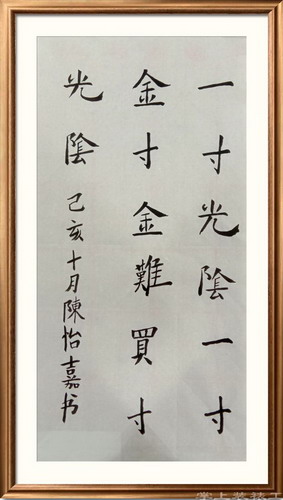 一寸光陰一寸
金寸金難買寸
光陰 己亥十月陳怡嘉书